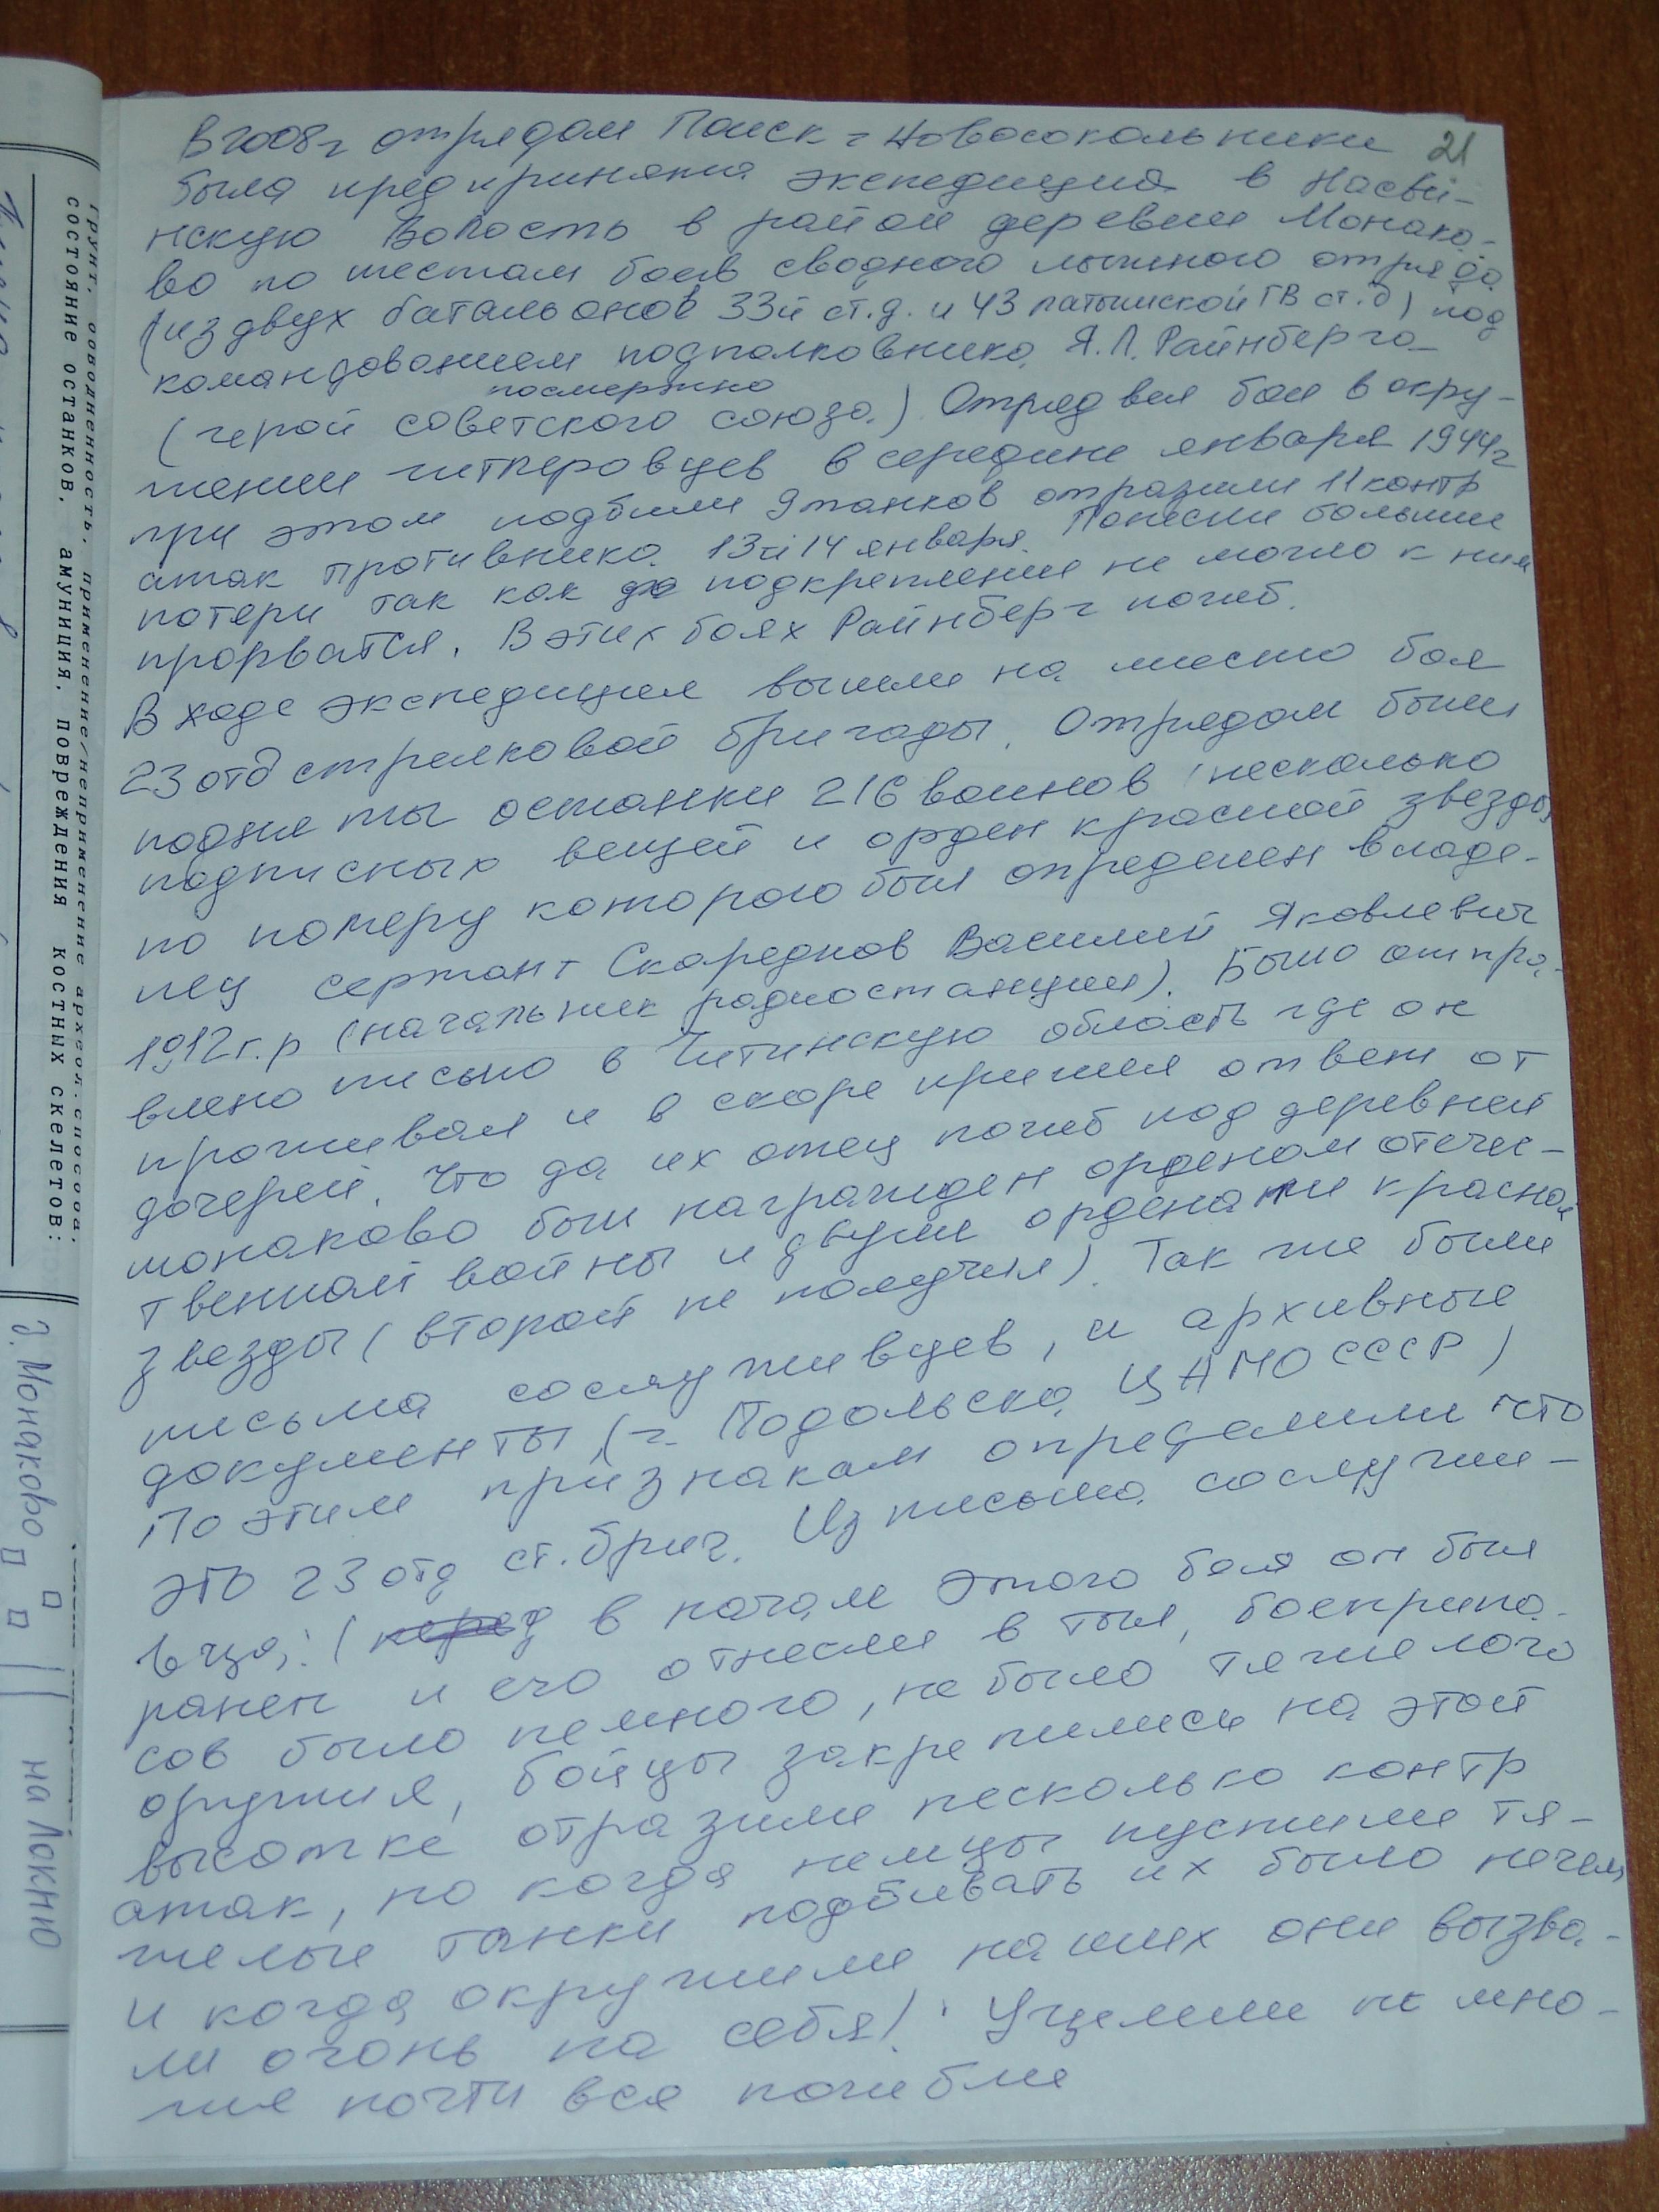 21
В 2008г отрядом Поиск г Новосокольники
была предпринята экспедиция в Насви-
нскую волость в район деревни Монако-
во по местам боёв сводного лыжного отряда
(из двух батальонов 33й ст.д. и 43 латышской ГВ ст.д) под
командованием подполковника Я.Л. Райнберга
посмертно
(герой советского союза.) Отряд вёл бои в окру-
жении гитлеровцев в середине января 1944г
при этом подбили 9 танков отразили 11 контр
атак противника 13 и 14 января. Понесли большие
потери так как подкрепление не могло к ним
прорватся. В этих боях Райнберг погиб.
В ходе экспедиция вышли на место боя
23 отд стрелковой бригады. Отрядом были
подняты останки 216 воинов несколько
подписных вещей и орден красной звезды,
по номеру которого был определен владе-
лец сержант Скареднов Василий Яковлевич
1912г.р (начальник радиостанции). Было отпра-
влено письмо в Читинскую область где он
проживал и в скоре пришёл ответ от
дочерей. Что да их отец погиб под деревней
монаково был награжден орденом отечес-
твенной войны и двумя орденами красной
звезды (второй не получил). Так же были
письма сослуживцев, и архивные
документы (г. Подольска ЦАМО СССР)
По этим признакам определили что
это 23 отд ст. бриг. Из письма сослужи-
вца: (в начале этого боя он был
ранен и его отнесли в тыл, боеприпа-
сов было немного, не было тяжелого
оружия, бойцы закрепились на этой
высотке отразили несколько контр
атак, но когда немцы пустили тя-
желые танки подбивать их было нечем
и когда окружили наших они вызва-
ли огонь на себя! Уцелели не мно-
гие почти все погибли
грунт, обводненность, применение/неприменение археол.способа.
состояние останков, амуниция, повреждения костных скелетов:
д. Монаково
на Локню